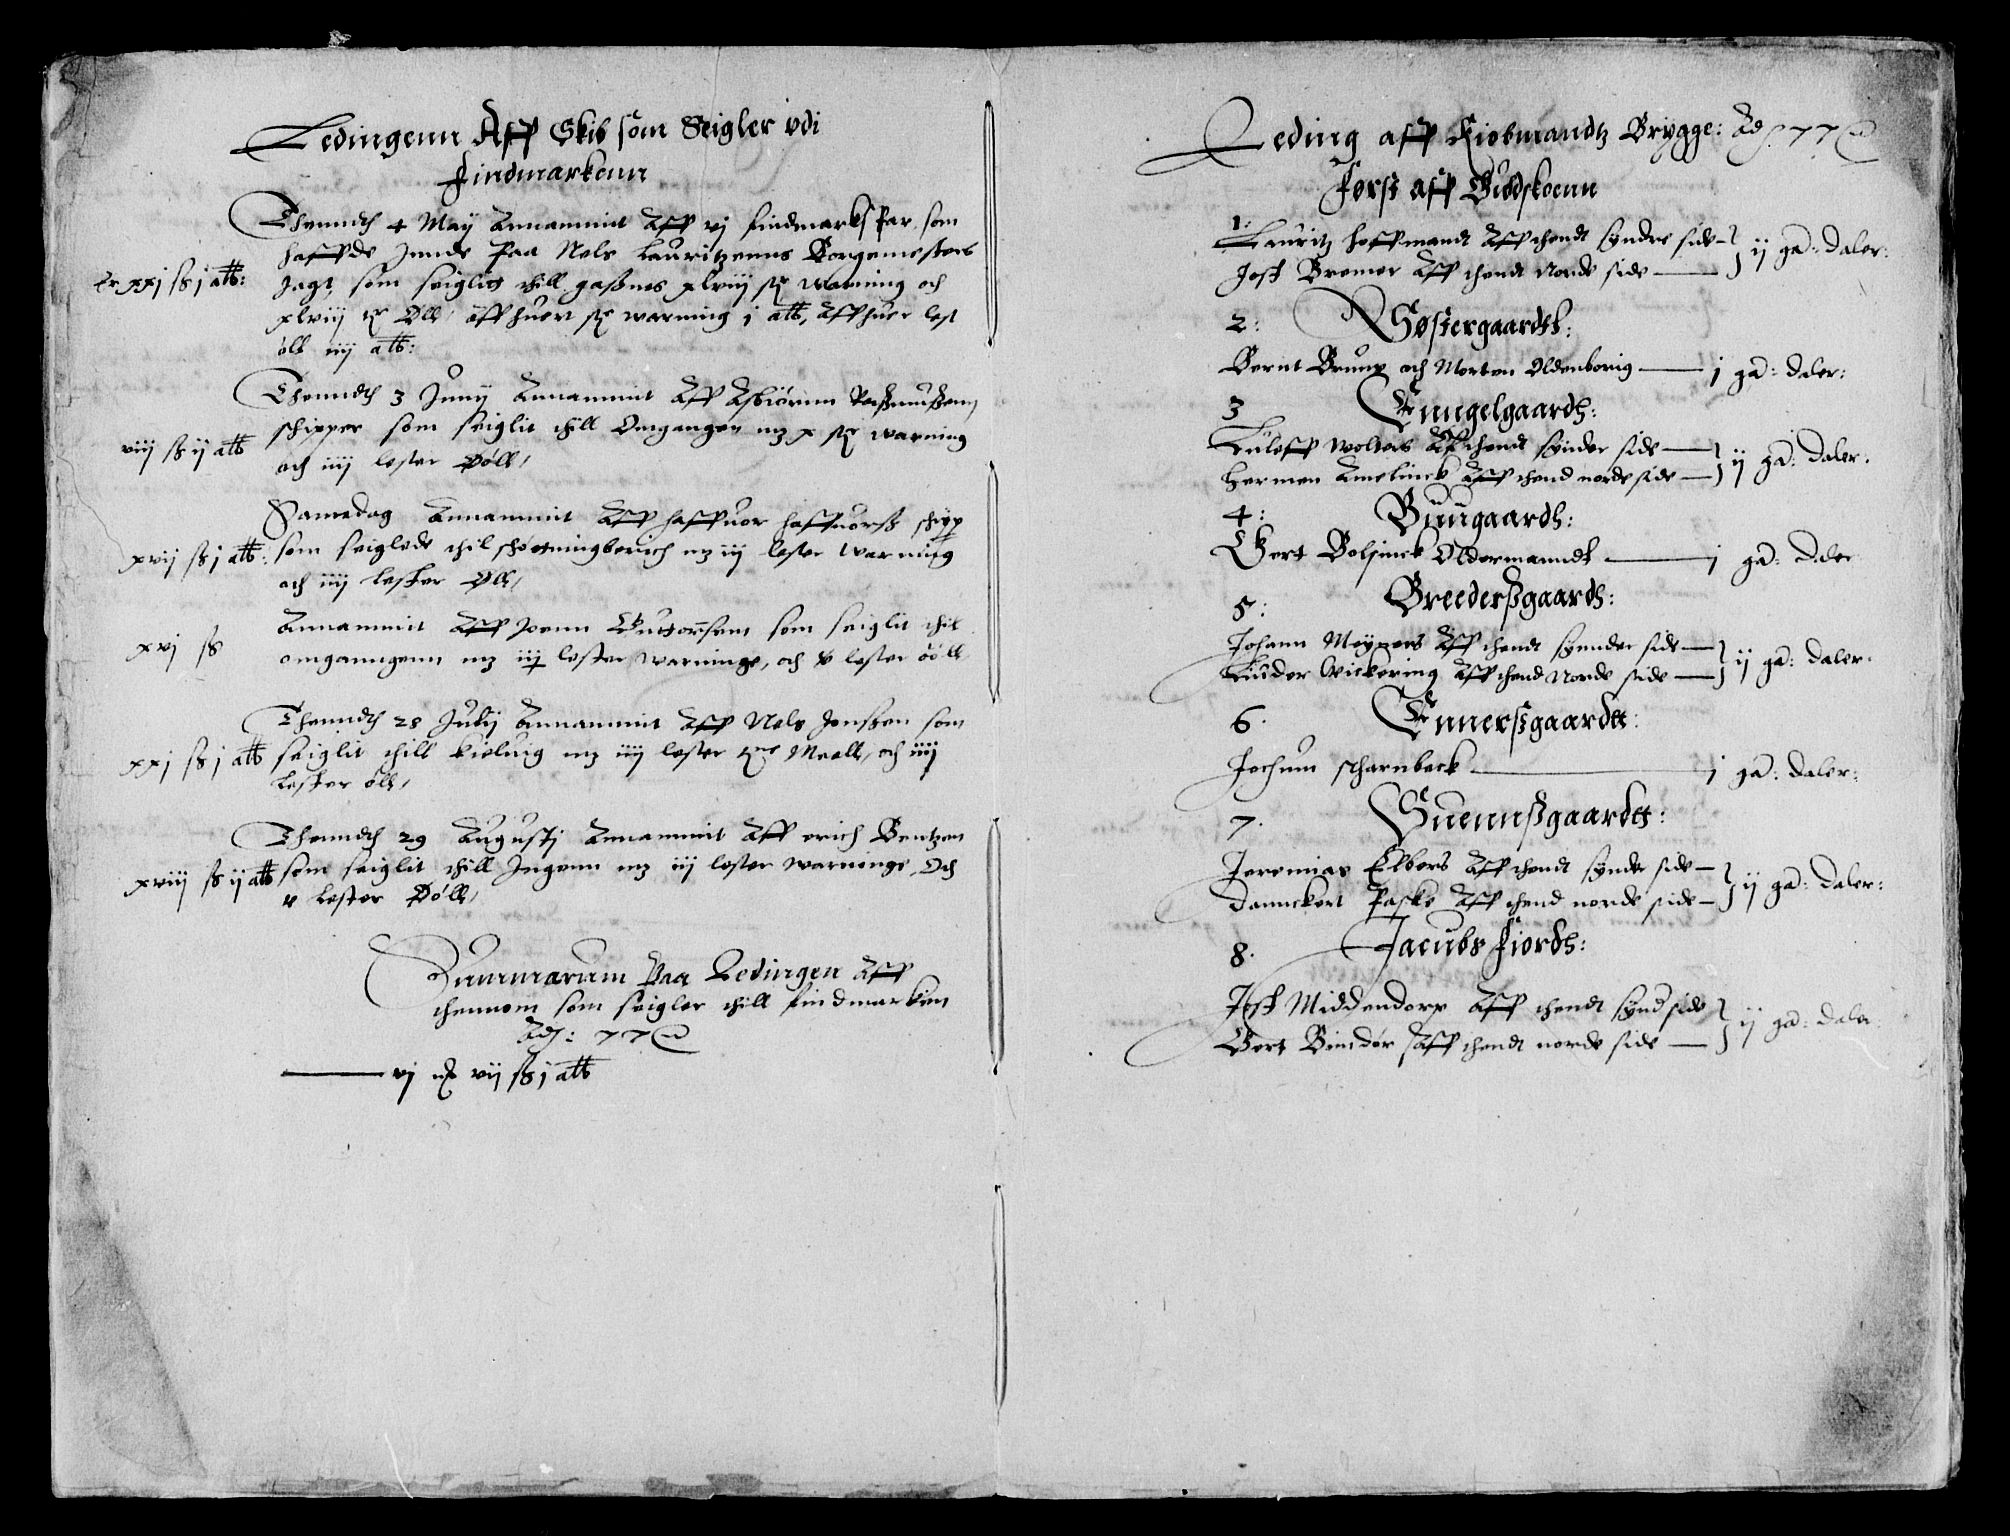 Ledingenn Aff Skib som Seigler vdi
Findmarkenn
Thenndth 4 Maÿ Annammit Aff vj findmarks Par som
haffde Jnnde Paa Nels Lauritzenns Borgemesters
Jagt, som seiglit thill gaßnes xlviij st warning och
xlviij Øll, aff huert st warning j alb, Aff huer lest
öll iiij alb:
xxj ß j alb:
Thenndth 3 Junij Annammit Aff Asbiörnn Raßmußenn
schipper som seiglit thill Omgangen mz x st warning
och iiij lester Ööll,
viij ß ij alb
Samedag Annammit Aff haffuor haffuorß schipp
som seiglede thil mz iij lester warning
och iiij lester Øll,
xvij ß j alb:
Annammit Aff Joenn Guttormsenn som seiglit thil
omganngenn mz iij lester warninge, och v lester ööll
xvj ß
Thenndth 28 Julij Annammit Aff Nels Jenssen som
seiglit thill kieluig mz iiij lester Meell, och iiij
lester öll,
xxj ß j alb
Thenndth 29 Augustj Annammit Aff erich Bentzen
som seiglit thill Jngenn mz iij lester warnenge, Och
v lester Ööll,
xviij ß ij alb
Summarum Paa Ledingen Aff
thennom som seigler thill findmarkenn
Adj: 77
vj vij ß j alb
Leding aff Kiøbmandtz Brygge: Adj 77
Først aff Guldskoenn
1: Lauritz hoffmandt Aff thendt syndre side
Jost Bremer Aff thendt Norde side ij ga: daler:
2: Søstergaardt:
Bernt Brunn och Morten Oldenborig j ga: daler:
3 Enngelgaardh:
Luleff Wolters Aff thendt synder side
Hermen Amelinck Aff thend norde side ij ga: daler:
4: Buugaardh:
Gert Bolsinck Oldermanndt j ga: daler
5: Breederßgaardh:
Johann Meÿners Aff thendt synnder side
Luder Wickering Aff thend Norde side ij ga: daler:
6. Ennerßgaardt:
Jochum scharnbeck j ga: daler:
7. Suennßgaardt:
Jeremias Elbers Aff thendt synder side
Danckert Paske Aff thend norde side ij ga: daler:
8. Jacubs fiordh:
Jost Middendorp Aff thendt synd side
Gert Bindør Aff thendt norde side ij ga: daler